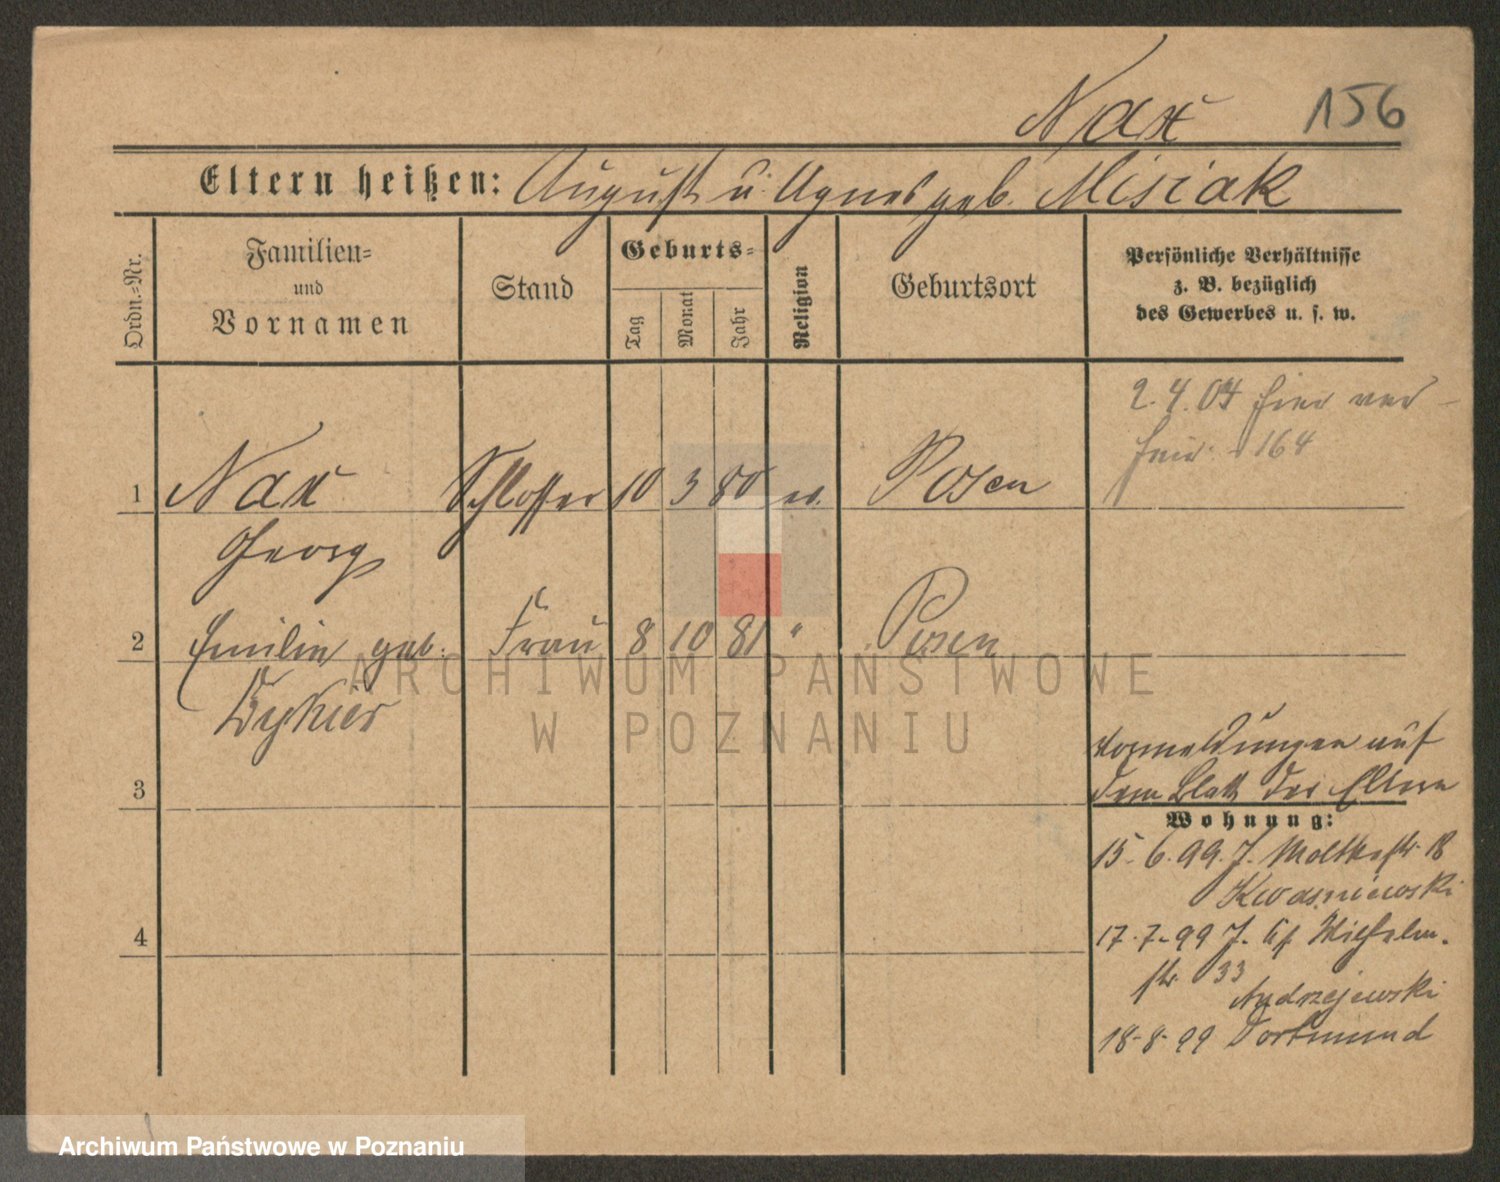 Nax 156
Eltern heißen: August u. Agnes geb. Misiak
Ordn.=Nr.
Familien=
und
Vornamen
Stand
Geburts=
Tag
Monat
Jahr
Religion
Geburtsort
Persönliche Verhältnisse
z. B. bezüglich
des Gewerbes u. s. w.
2. 4. 04 hier ver-
heir. 164
1 Nax Schlosser 10 3 80 ev. Posen
Georg
2 Emilie geb. Frau 8 10 81 " Posen
ARCHIWUM PAŃSTWOWE
W POZNANIU
Vormeldungen auf
3 dem Blatt der Eltern
Wohnung:
15. 6. 99. J. Moltkestr. 18
Kwasniewski
4 17. 7. 99 J. Wilhelm-
str. 33
Andrzejewski
18. 8. 99 Dortmund
Archiwum Państwowe w Poznaniu